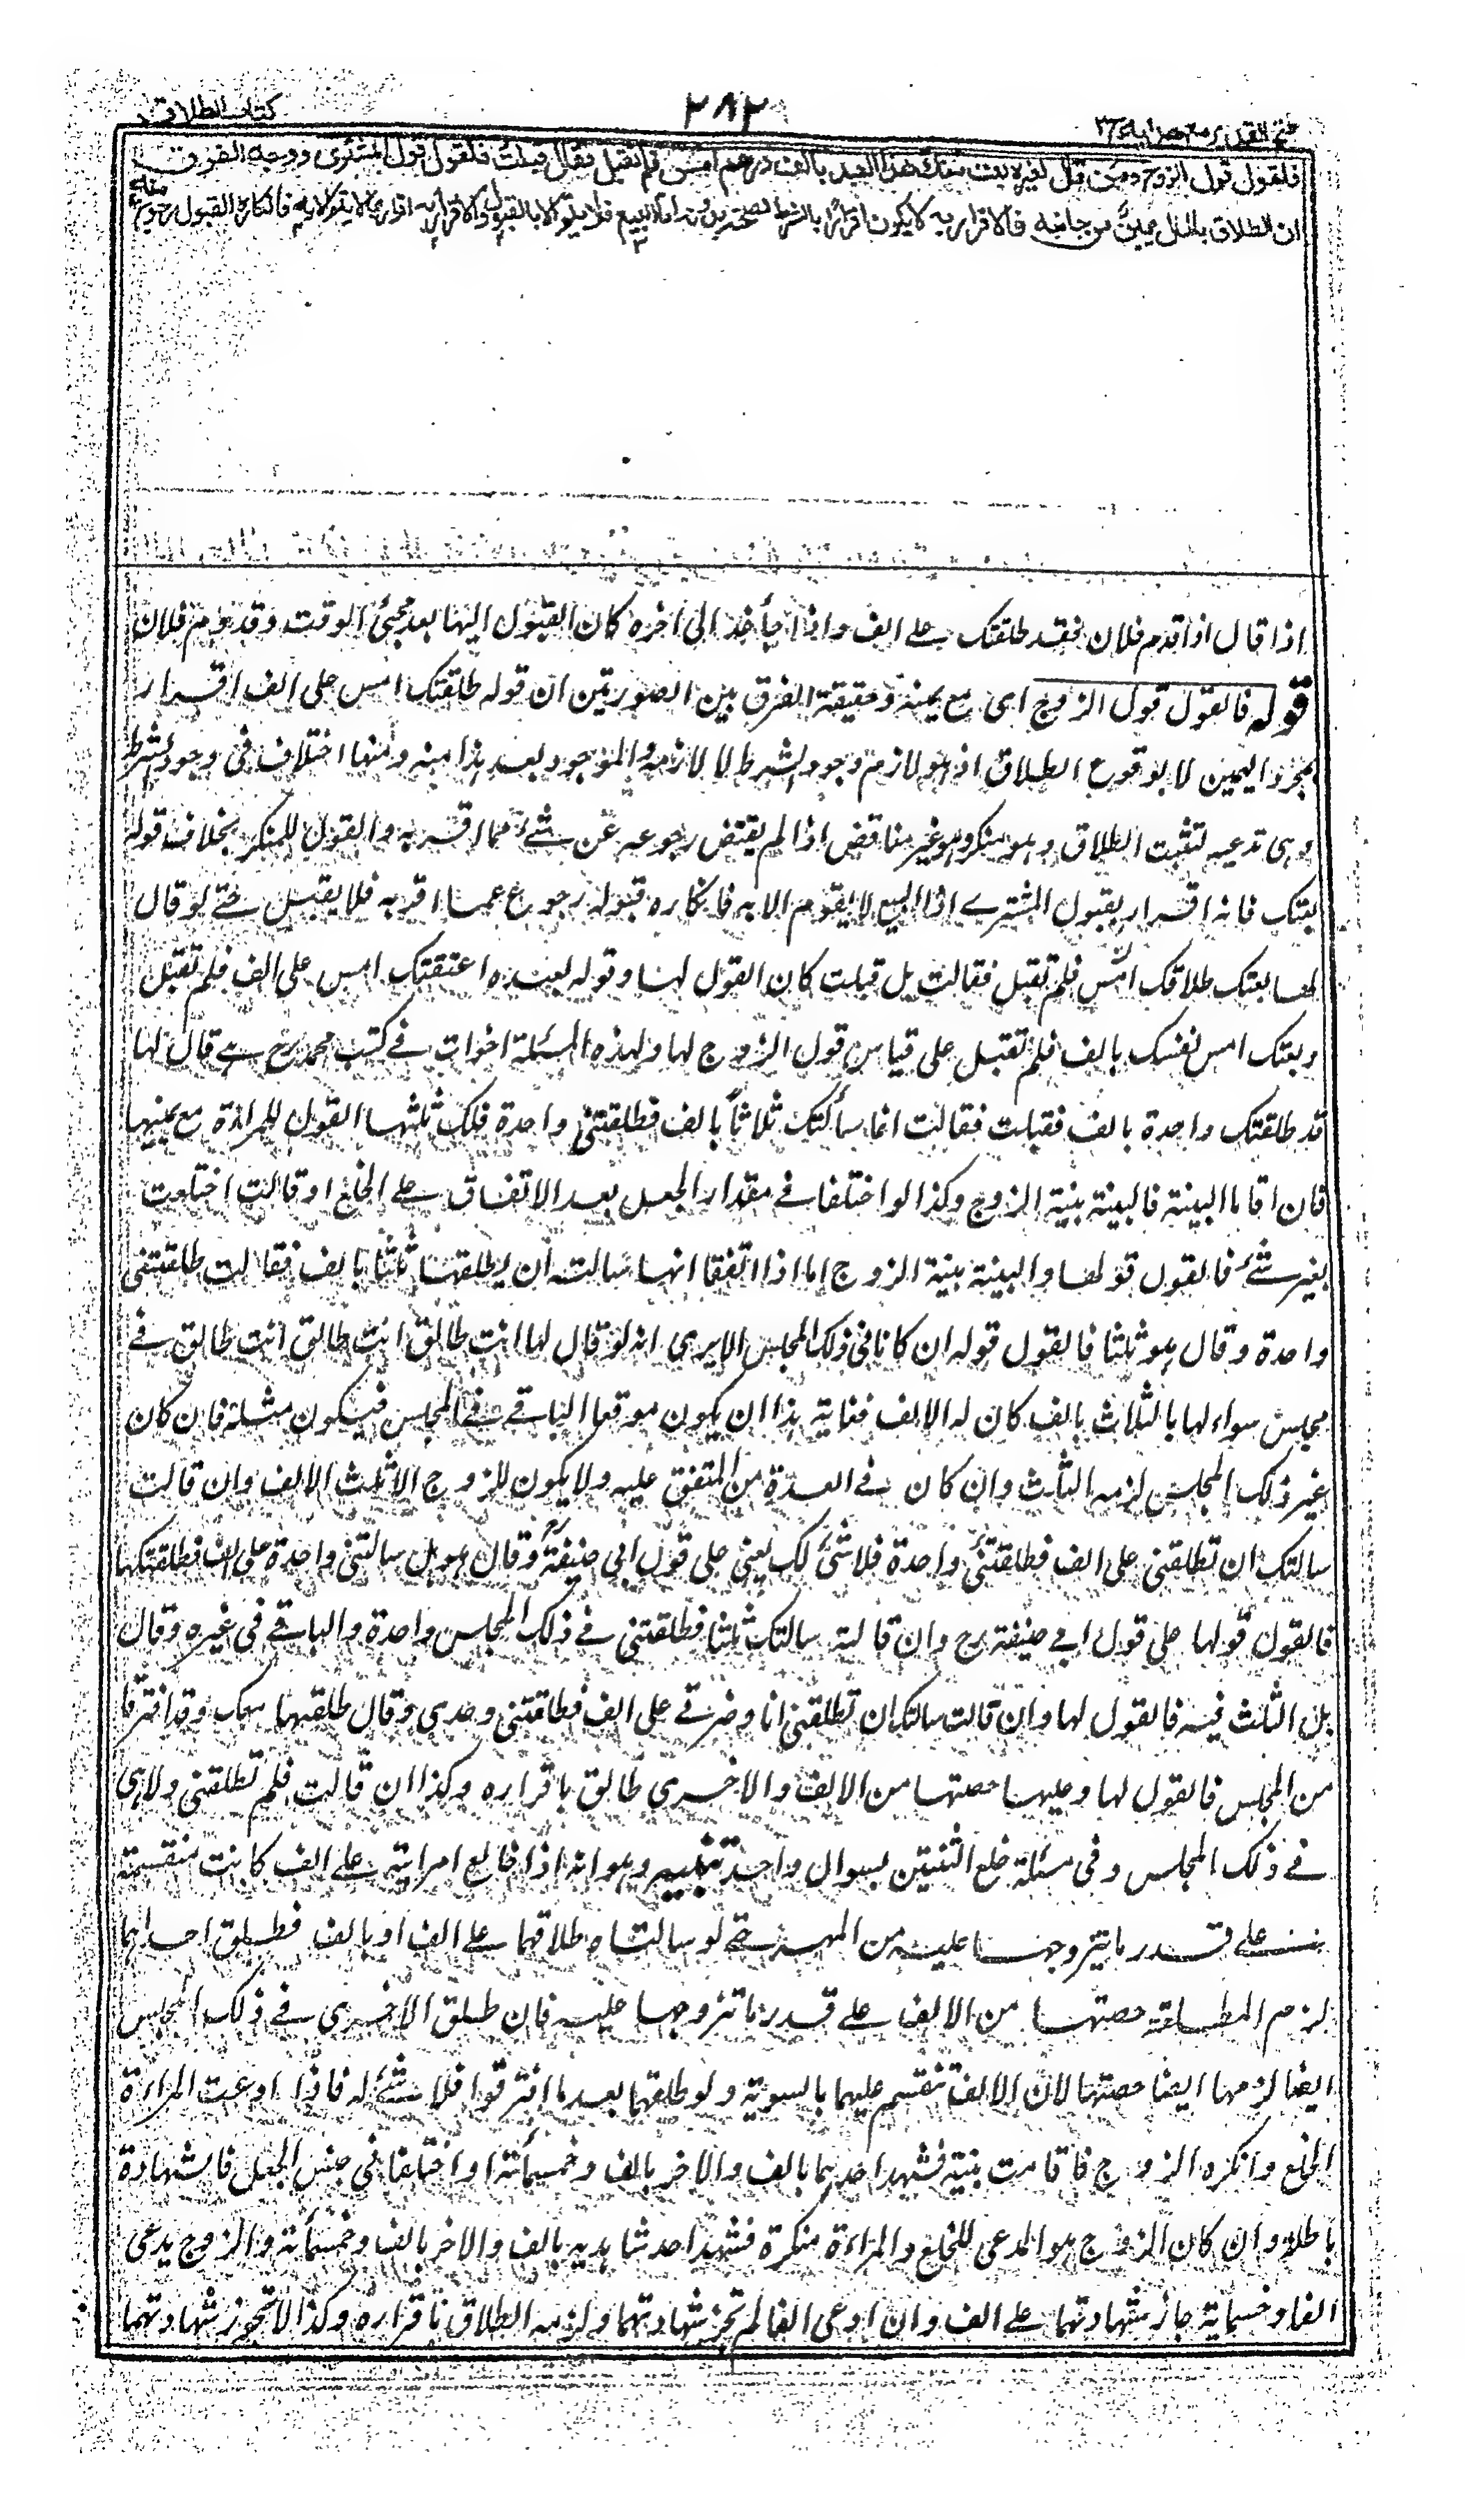 كتاب الطلاق
٢٨٢
فتح القدير مع هداية ج ٢
فالقول قول الزوج ومن قال لغيره بعت منك هذا العبد بالف درهم امس فلم تقبل فقال قبلت فالقول قول المشترى ووجه الفرق
ان الطلاق بالمال يمين من جانبه فالاقرار به لا يكون اقرارا بالشرط لصحته بدونه اما البيع فلا يتم الا بالقبول والاقرار به اقرار بما لا يتم الا به فانكاره القبول رجوع منه
اذا قال اذا قدم فلان فقد طلقتك على الف واذا جاء غد الى اخره كان القبول اليها بعد مجئ الوقت وقدوم فلان
قوله فالقول قول الزوج اى مع يمينه وحقيقة الفرق بين الصورتين ان قوله طلقتك امس على الف اقرار
بمجرد اليمين لا بوقوع الطلاق اذ هو لازم وجود الشرط لا لازمه والموجود بعد هذا منه ومنها اختلاف فى وجود الشرط
وهى تدعيه لتثبت الطلاق وهو منكر وهو غير مناقض اذا لم يقتض رجوعه عن شئ مما اقر به والقول للمنكر بخلاف قوله
بعتك فانه اقرار بقبول المشترى اذ البيع لا يقوم الا به فانكاره قبوله رجوع عما اقر به فلا يقبل حتى لو قال
لها بعتك طلاقك امس فلم تقبل فقالت بل قبلت كان القول لها وقوله لعبده اعتقتك امس على الف فلم تقبل
وبعتك امس نفسك بالف فلم تقبل على قياس قول الزوج لها ولهذه المسئلة اخوات فى كتب محمد رح هى قال لها
قد طلقتك واحدة بالف فقبلت فقالت انما سألتك ثلاثا بالف فطلقتنى واحدة فلك ثلثها القول للمراءة مع يمينها
فان اقاما البينة فالبينة بينة الزوج وكذا لو اختلفا فى مقدار الجعل بعد الاتفاق على الخلع او قالت اختلعت
بغير شئ فالقول قولها والبينة بينة الزوج اما اذا اتفقا انها سالته ان يطلقها ثلثا بالف فقالت طلقتنى
واحدة وقال هو ثلثا فالقول قوله ان كانا فى ذلك المجلس الا يرى انه لو قال لها انت طالق انت طالق انت طالق فى
مجلس سواء لها بالثلاث بالف كان له الالف فغاية هذا ان يكون موقعا الباقى فى المجلس فيكون مثله فان كان
غير ذلك المجلس لزمه الثلث وان كان فى العدة من المتفق عليه ولا يكون للزوج الا ثلث الالف وان قالت
سالتك ان تطلقنى على الف فطلقتنى واحدة فلا شئ لك يعنى على قول ابى حنيفة رح وقال هو بل سالتنى واحدة على الف فطلقتكها
فالقول قولها على قول ابى حنيفة رح وان قالت سالتك ثلثا فطلقتنى فى ذلك المجلس واحدة والباقى فى غيره وقال
بل الثلث فيه فالقول لها وان قالت سالتك ان تطلقنى انا وضرتى على الف فطلقتنى وحدى وقال طلقتها معك وقد افترقا
من المجلس فالقول لها وعليها حصتها من الالف والاخرى طالق باقراره وكذا ان قالت فلم تطلقنى ولا هى
فى ذلك المجلس وفى مسئلة خلع الثنتين بسوال واحد تنبيه وهو انه اذا خالع امراتيه على الف كانت منقسمة
على قدر ما يتزوجها عليه من المهر حتى لو سالتاه طلاقهما على الف او بالف فطلق احداهما
لزم المطلقة حصتها من الالف على قدر ما تزوجها عليه فان طلق الاخرى فى ذلك المجلس
ايضا لزمها ايضا حصتها لان الالف تنقسم عليهما بالسوية ولو طلقها بعد ما افترقوا فلا شئ له فاذا ادعت المراءة
الخلع وانكره الزوج فاقامت بينة فشهد احدهما بالف والاخر بالف وخمسمأئة او اختلفا فى جنس الجعل فالشهادة
باطلة وان كان الزوج هو المدعى للخلع والمراءة منكرة فشهد احد شاهديه بالف والاخر بالف وخمسمأئة والزوج يدعى
الفا وخمسماية جاز شهادتهما على الف وان ادعى الفا لم تجز شهادتهما ولزمه الطلاق باقراره وكذا لا تجوز شهادتهما